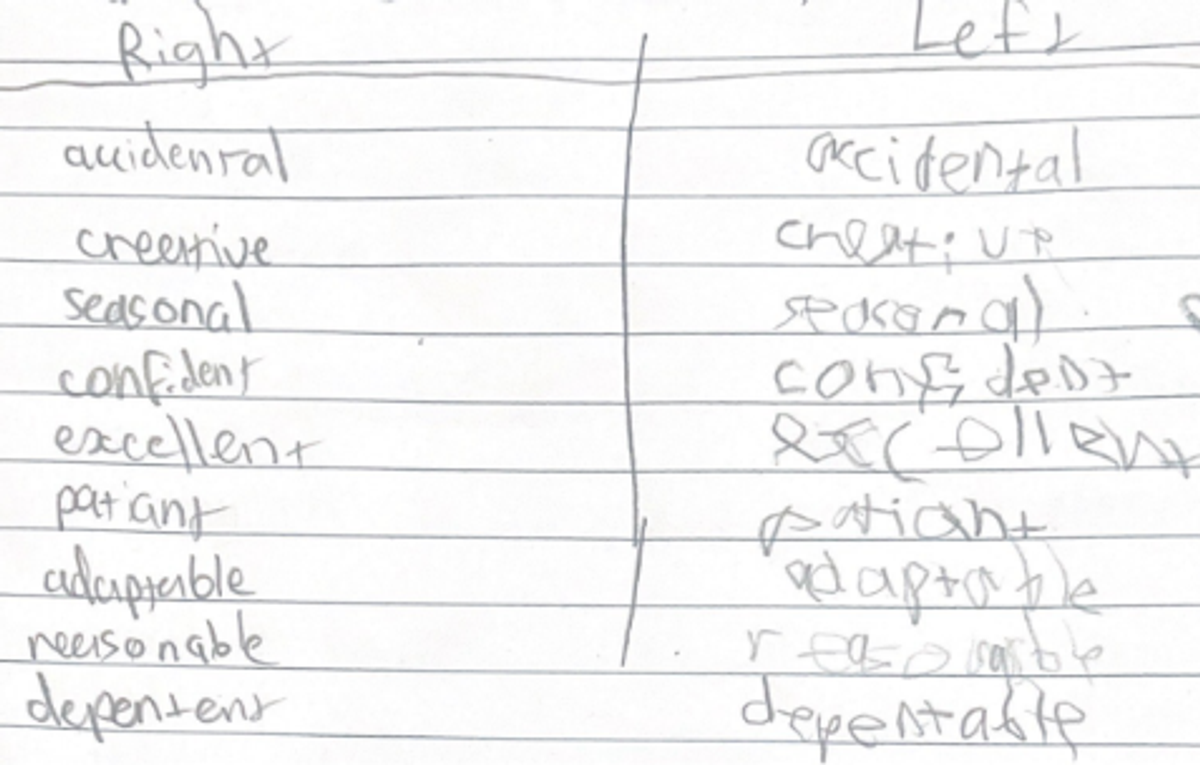 Right Left
accidental accidental
creative creative
seasonal seasonal
confident confident
excellent excellent
patiant patiant
adaptable adaptable
reasonable reasonable
depentent depentable